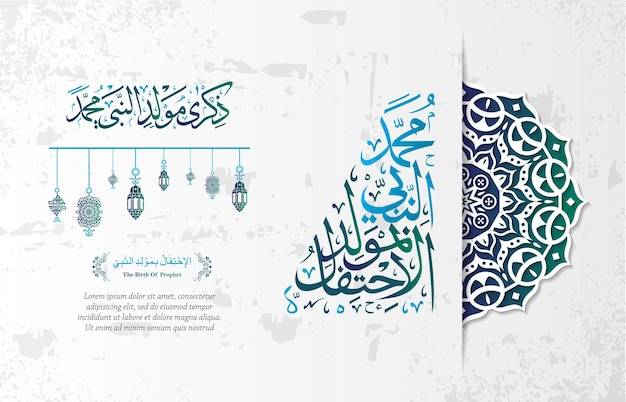 ذِكْرَى مَوْلِدِ النَّبِيِّ مُحَمَّدٍ
الإِحْتِفَالُ بِمَوْلِدِ النَّبِيِّ
The Birth Of Prophet
Lorem ipsum dolor sit amet,
consectetur adipiscing elit, sed
do eiusmod tempor incididunt
Ut enim ad minim veniam,
quis nostrud
مُحَمَّد
النَّبِيِّ
بمَوْلِدِ
الاِحْتِفَالُ